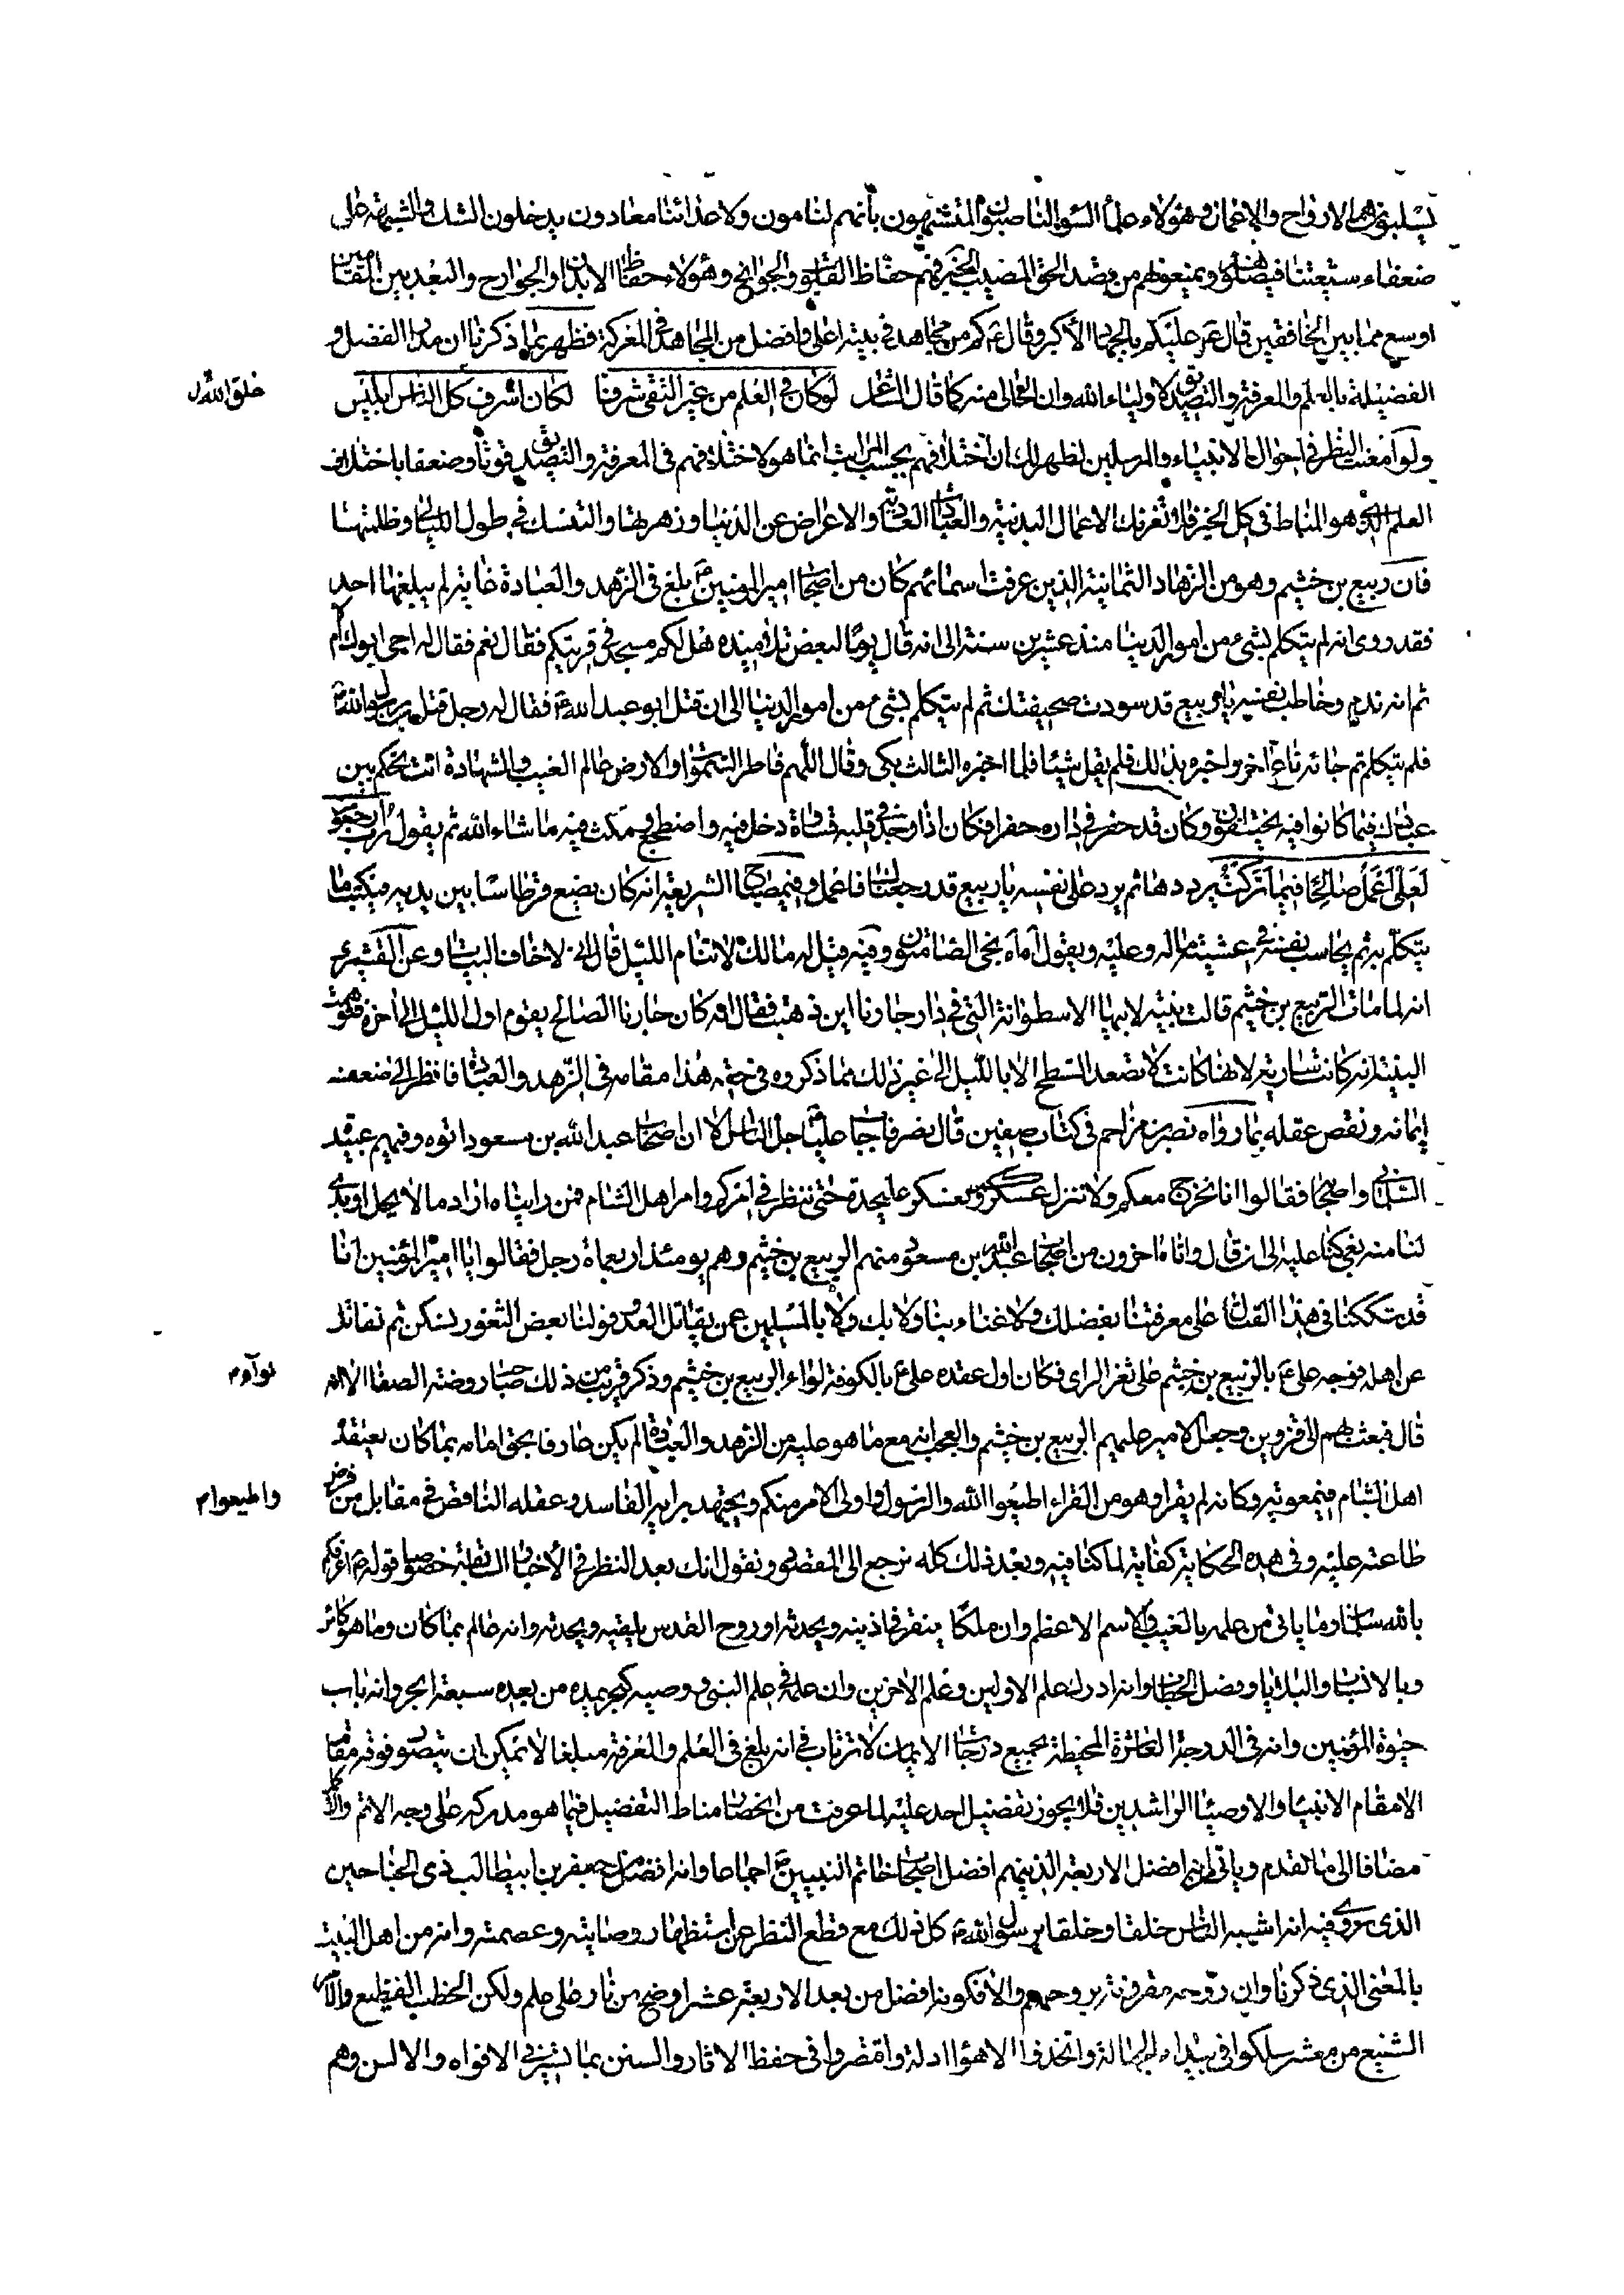 يسلبونهم الارواح والاموال وهؤلاء علماء السوء الناصبون المتشبهون بأنهم لنا موالون ولاعدائنا معادون يدخلون الشك والشبهة على
ضعفاء شيعتنا فيضلونهم ويمنعونهم عن قصد الحق المصيب الخبر فهم حفاظ القلوب والجوانح وهؤلاء حفاظ الابدان والجوارح والبعد بين المقامين
اوسع مما بين الخافقين قال ع عليكم بالجهاد الأكبر وقال ع كم من مجاهد في بيته اعلى وافضل من المجاهد في المعركة فظهر بما ذكرنا ان مدار الفضل و
الفضيلة بالعلم والمعرفة والتصديق لاولياء الله وان الخالي منه كما قال الشاعر لو كان في العلم من غير التقى شرفا لكان اشرف كل الناس ابليس
خلق الله ل
ولو امعنت النظر في احوال الانبياء والمرسلين لظهر لك ان اختلافهم بحسب المراتب انما هو لاختلافهم في المعرفة والتصديق قوتا وضعفا باختلاف
العلم الذي هو المناط في كل الخير فلا تغرنك الاعمال البدنية والعبادات العادية والاعراض عن الدنيا وزهرتها والتنسك في طول الليالي وظلمتها
فان ربيع بن خثيم وهو من الزهاد الثمانية الذين عرفت اسمائهم كان من اصحاب امير المؤمنين ع بلغ في الزهد والعبادة غاية لم يبلغها احد
فقد روى انه لم يتكلم بشئ من امور الدنيا منذ عشرين سنة الى انه قال يوما لبعض تلاميذه هل لكم مسجد في قريتكم فقال نعم فقال له احي ابوك ام
ثم انه ندم وخاطب نفسه يا ربيع قد سودت صحيفتك ثم لم يتكلم بشئ من امور الدنيا الى ان قتل ابو عبد الله ع فقال له رجل قتل بن رسول الله ص
فلم يتكلم ثم جائه ناع آخر واخبره بذلك فلم يقل شيئا فلما اخبره الثالث بكى وقال اللهم فاطر السموات والارض عالم الغيب والشهادة انت تحكم بين
عبادك فيما كانوا فيه يختلفون وكان قد حفر في داره حفرا فكان اذا وجد في قلبه قساوة دخل فيه واضطجع ومكث فيه ما شاء الله ثم يقول رب ارجعون
لعلى اعمل صالحا فيما تركت يرددها ثم يرد على نفسه يا ربيع قد رجعناك فاعمل وفي مصباح الشريعة انه كان يضع قرطاسا بين يديه فيكتب ما
يتكلم به ثم يحاسب نفسه في عشيته ماله وعليه ويقول آه آه نجى الصامتون وفيه قيل له مالك لا تنام الليل قال اني لاخاف البيات وعن القشيري
انه لما مات الربيع بن خثيم قالت بنية لابيها الاسطوانة التي في دار جارنا اين ذهبت فقال انه كان جارنا الصالح يقوم اول الليل الى آخره فتوهمت
البنية انه كانت سارية لانها كانت لا تصعد السطح الا بالليل الى غير ذلك مما ذكروه في حقه هذا مقامه في الزهد والعبادة فانظر الى ضعف
ايمانه ونقص عقله بما رواه نصر بن مزاحم في كتاب صفين قال نصر فاجاب عليا ع جل الناس الا ان اصحاب عبد الله بن مسعود اتوه وفيهم عبيدة
السلماني واصحابه فقالوا انا نخرج معكم ولا ننزل عسكركم ونعسكر عليحدة حتى ننظر في امركم وامر اهل الشام فمن رايناه اراد ما لا يحل او بدى
لنا منه بغي كنا عليه الى ان قال واتاه اخرون من اصحاب عبد الله بن مسعود منهم الربيع بن خثيم وهم يومئذ اربعماة رجل فقالوا يا امير المؤمنين انا
قد شككنا في هذا القتال على معرفتنا بفضلك ولا غناء بنا ولا بك ولا بالمسلمين عمن يقاتل العدو فولنا بعض الثغور نسكن ثم نقاتل
عن اهله فوجه علي ع بالربيع بن خثيم على ثغر الراي فكان اول عقده علي ع بالكوفة لواء الربيع بن خثيم وذكر قريب من ذلك صاحب روضة الصفا الا انه
قال فبعث بهم الى قزوين وجعل الامير عليهم الربيع بن خثيم والعجب انه مع ما هو عليه من الزهد والعبادة لم يكن عارفا بحق امامه بما كان يعتقده
اهل الشام في معوية وكانه لم يقرا وهو من القراء اطيعوا الله والرسول واولى الامر منكم ويجتهد برايه الفاسد وعقله الناقص في مقابل من فرض
واطيعوا م
طاعته عليه وفي هذه الحكاية كفاية لما كنا فيه وبعد ذلك كله نرجع الى المقصود ونقول انك بعد النظر في الأخبار السابقة خصوصا قوله ع اعرفكم
بالله سلمان وما ياتي من علمه بالغيب والاسم الاعظم وان ملكا ينقر في اذنه ويحدثه او روح القدس يلقيه ويحدثه وانه عالم بما كان وما هو كائن
وبالانساب والبلايا وفصل الخطاب وانه ادرك علم الاولين وعلم الاخرين وان علمه في علم النبي ووصيه كبحر يمده من بعده سبعة ابحر وانه باب
حيوة المؤمنين وانه في الدرجة العاشرة المحيطة بجميع درجات الايمان لا ترتاب في انه بلغ في العلم والمعرفة مبلغا لا يمكن ان يتصور فوقه مقام
الا مقام الانبياء والاوصياء الراشدين فلا يجوز تفضيل احد عليه لما عرفت من انحصار مناط التفضيل فيما هو مدركه على وجه الاتم والاكمل
مضافا الى ما تقدم وياتي من انه افضل الاربعة الذين هم افضل اصحاب خاتم النبيين ص اجماعا وانه افضل من جعفر بن ابيطالب ذي الجناحين
الذي روى فيه انه اشبه الناس خلقا وخلقا برسول الله ص كل ذلك مع قطع النظر عن استظهار وصايته وعصمته وانه من اهل البيت
بالمعنى الذي ذكرنا وان روحه مقرونة بروحهم والا فكونه افضل من بعد الاربعة عشر اوضح من نار على علم ولكن الخطب الفظيع والامر
الشنيع من معشر سلكوا في بيداء الجهالة واتخذوا الاهواء ادلة واقتصروا في حفظ الاثار والسنن بما اشتهر في الافواه والالسن وهم